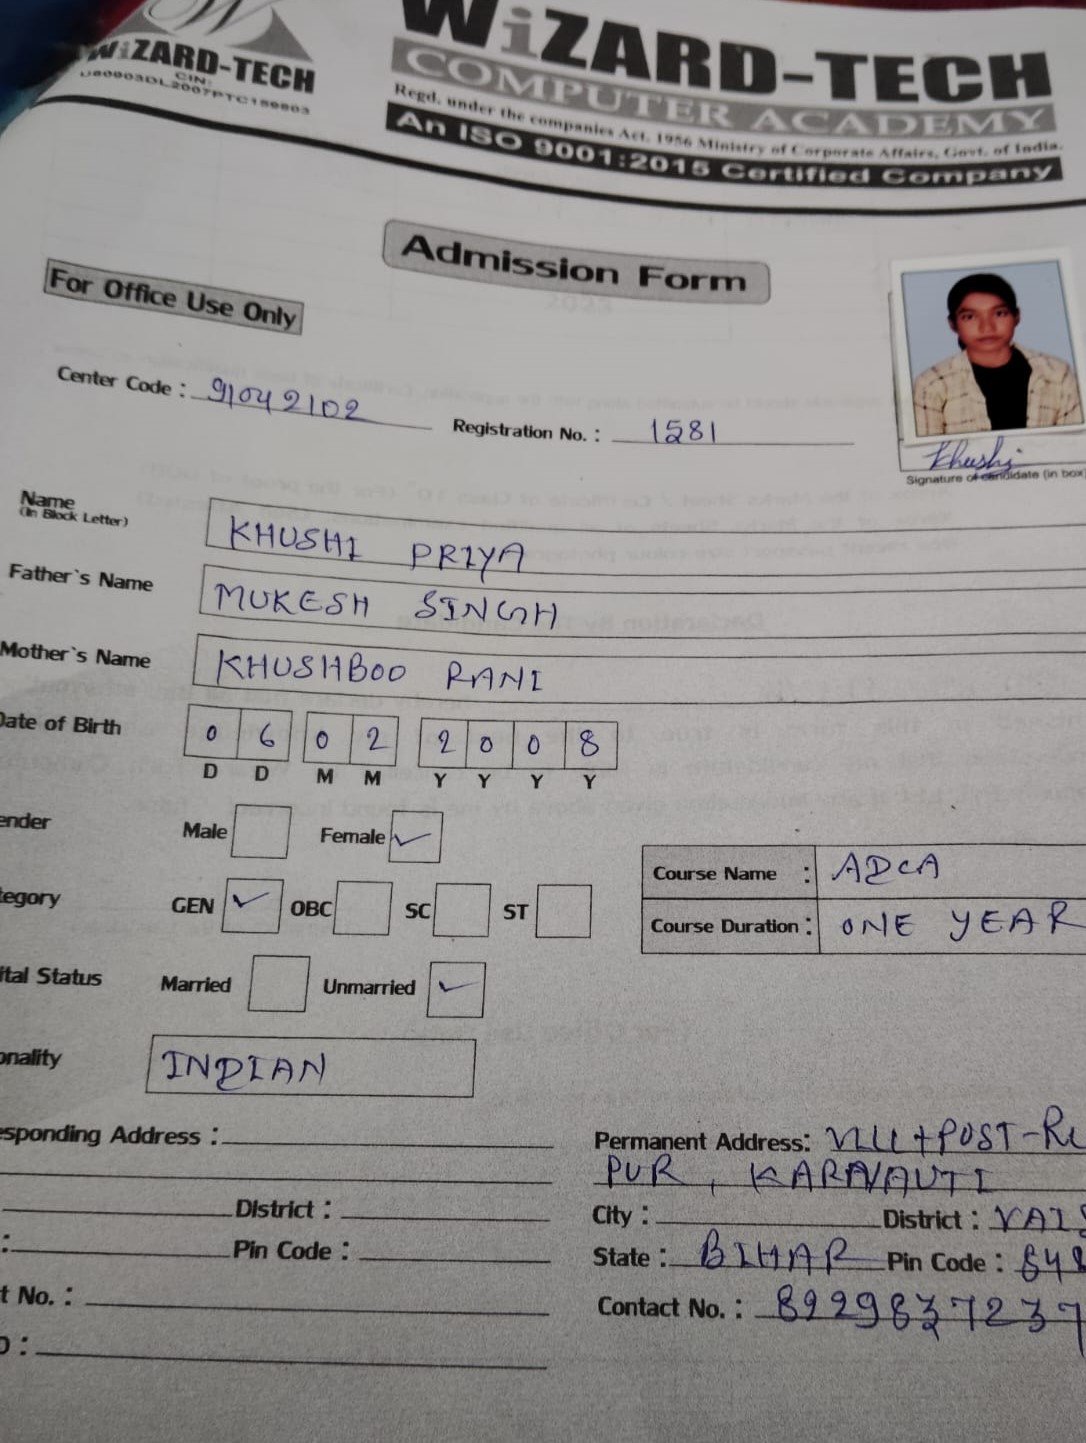 WiZARD-TECH
CIN:
U80903DL2007PTC159803
WiZARD-TECH
COMPUTER ACADEMY
Regd. under the companies Act. 1956 Ministry of Corporate Affairs, Govt. of India.
An ISO 9001:2015 Certified Company
Admission Form
For Office Use Only
Center Code : 91042102
Registration No. : 1581
Khushi
Signature of candidate (in box)
Name
(In Block Letter)
KHUSHI PRIYA
Father`s Name
MUKESH SINGH
Mother`s Name
KHUSHBOO RANI
Date of Birth
0 6 0 2 2 0 0 8
D D M M Y Y Y Y
ender Male Female ✓
tegory GEN ✓ OBC SC ST
Course Name : ADCA
Course Duration : ONE YEAR
ital Status Married Unmarried ✓
onality INDIAN
sponding Address :
Permanent Address: VILL+POST-
PUR, KARNAUTI
District :
City : District : VAIS
Pin Code :
State : BIHAR Pin Code :
t No. :
Contact No. : 8229837237